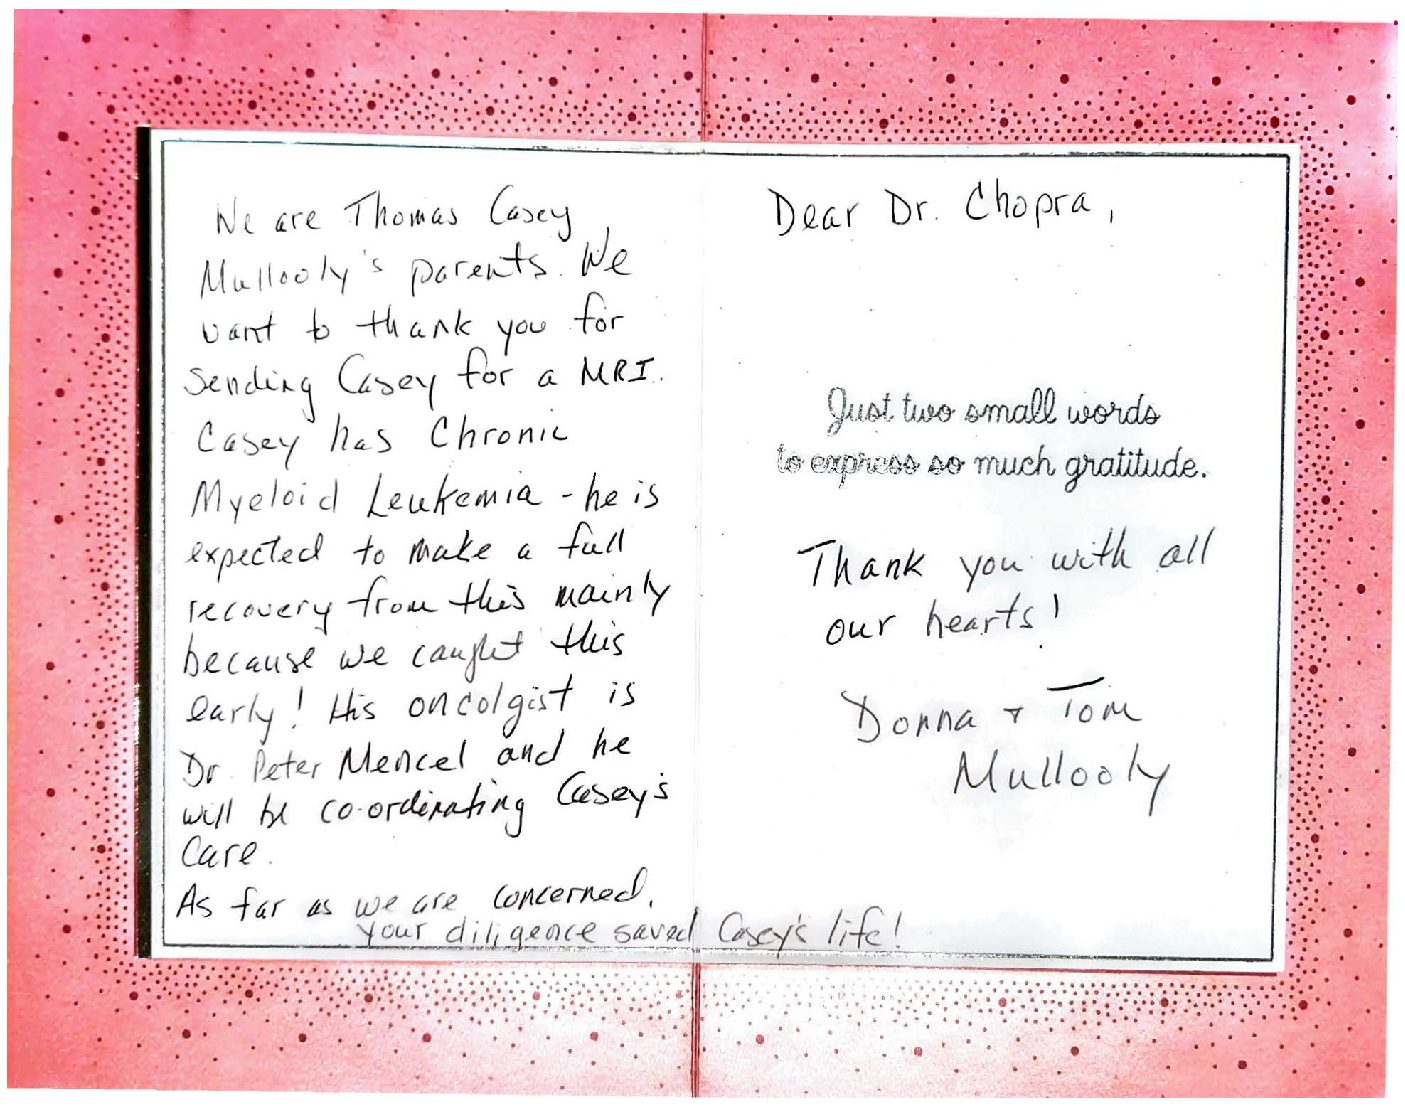 Dear Dr. Chopra,
We are Thomas Casey
Mullooly's parents. We
want to thank you for
sending Casey for a MRI.
Casey has Chronic
Myeloid Leukemia - he is
expected to make a full
recovery from this mainly
because we caught this
early! His oncolgist is
Dr. Peter Mencel and he
will be co-ordinating Casey's
Care.
As far as we are concerned,
your diligence saved Casey's life!
Just two small words
to express so much gratitude.
Thank you with all
our hearts!
Donna + Tom
Mullooly